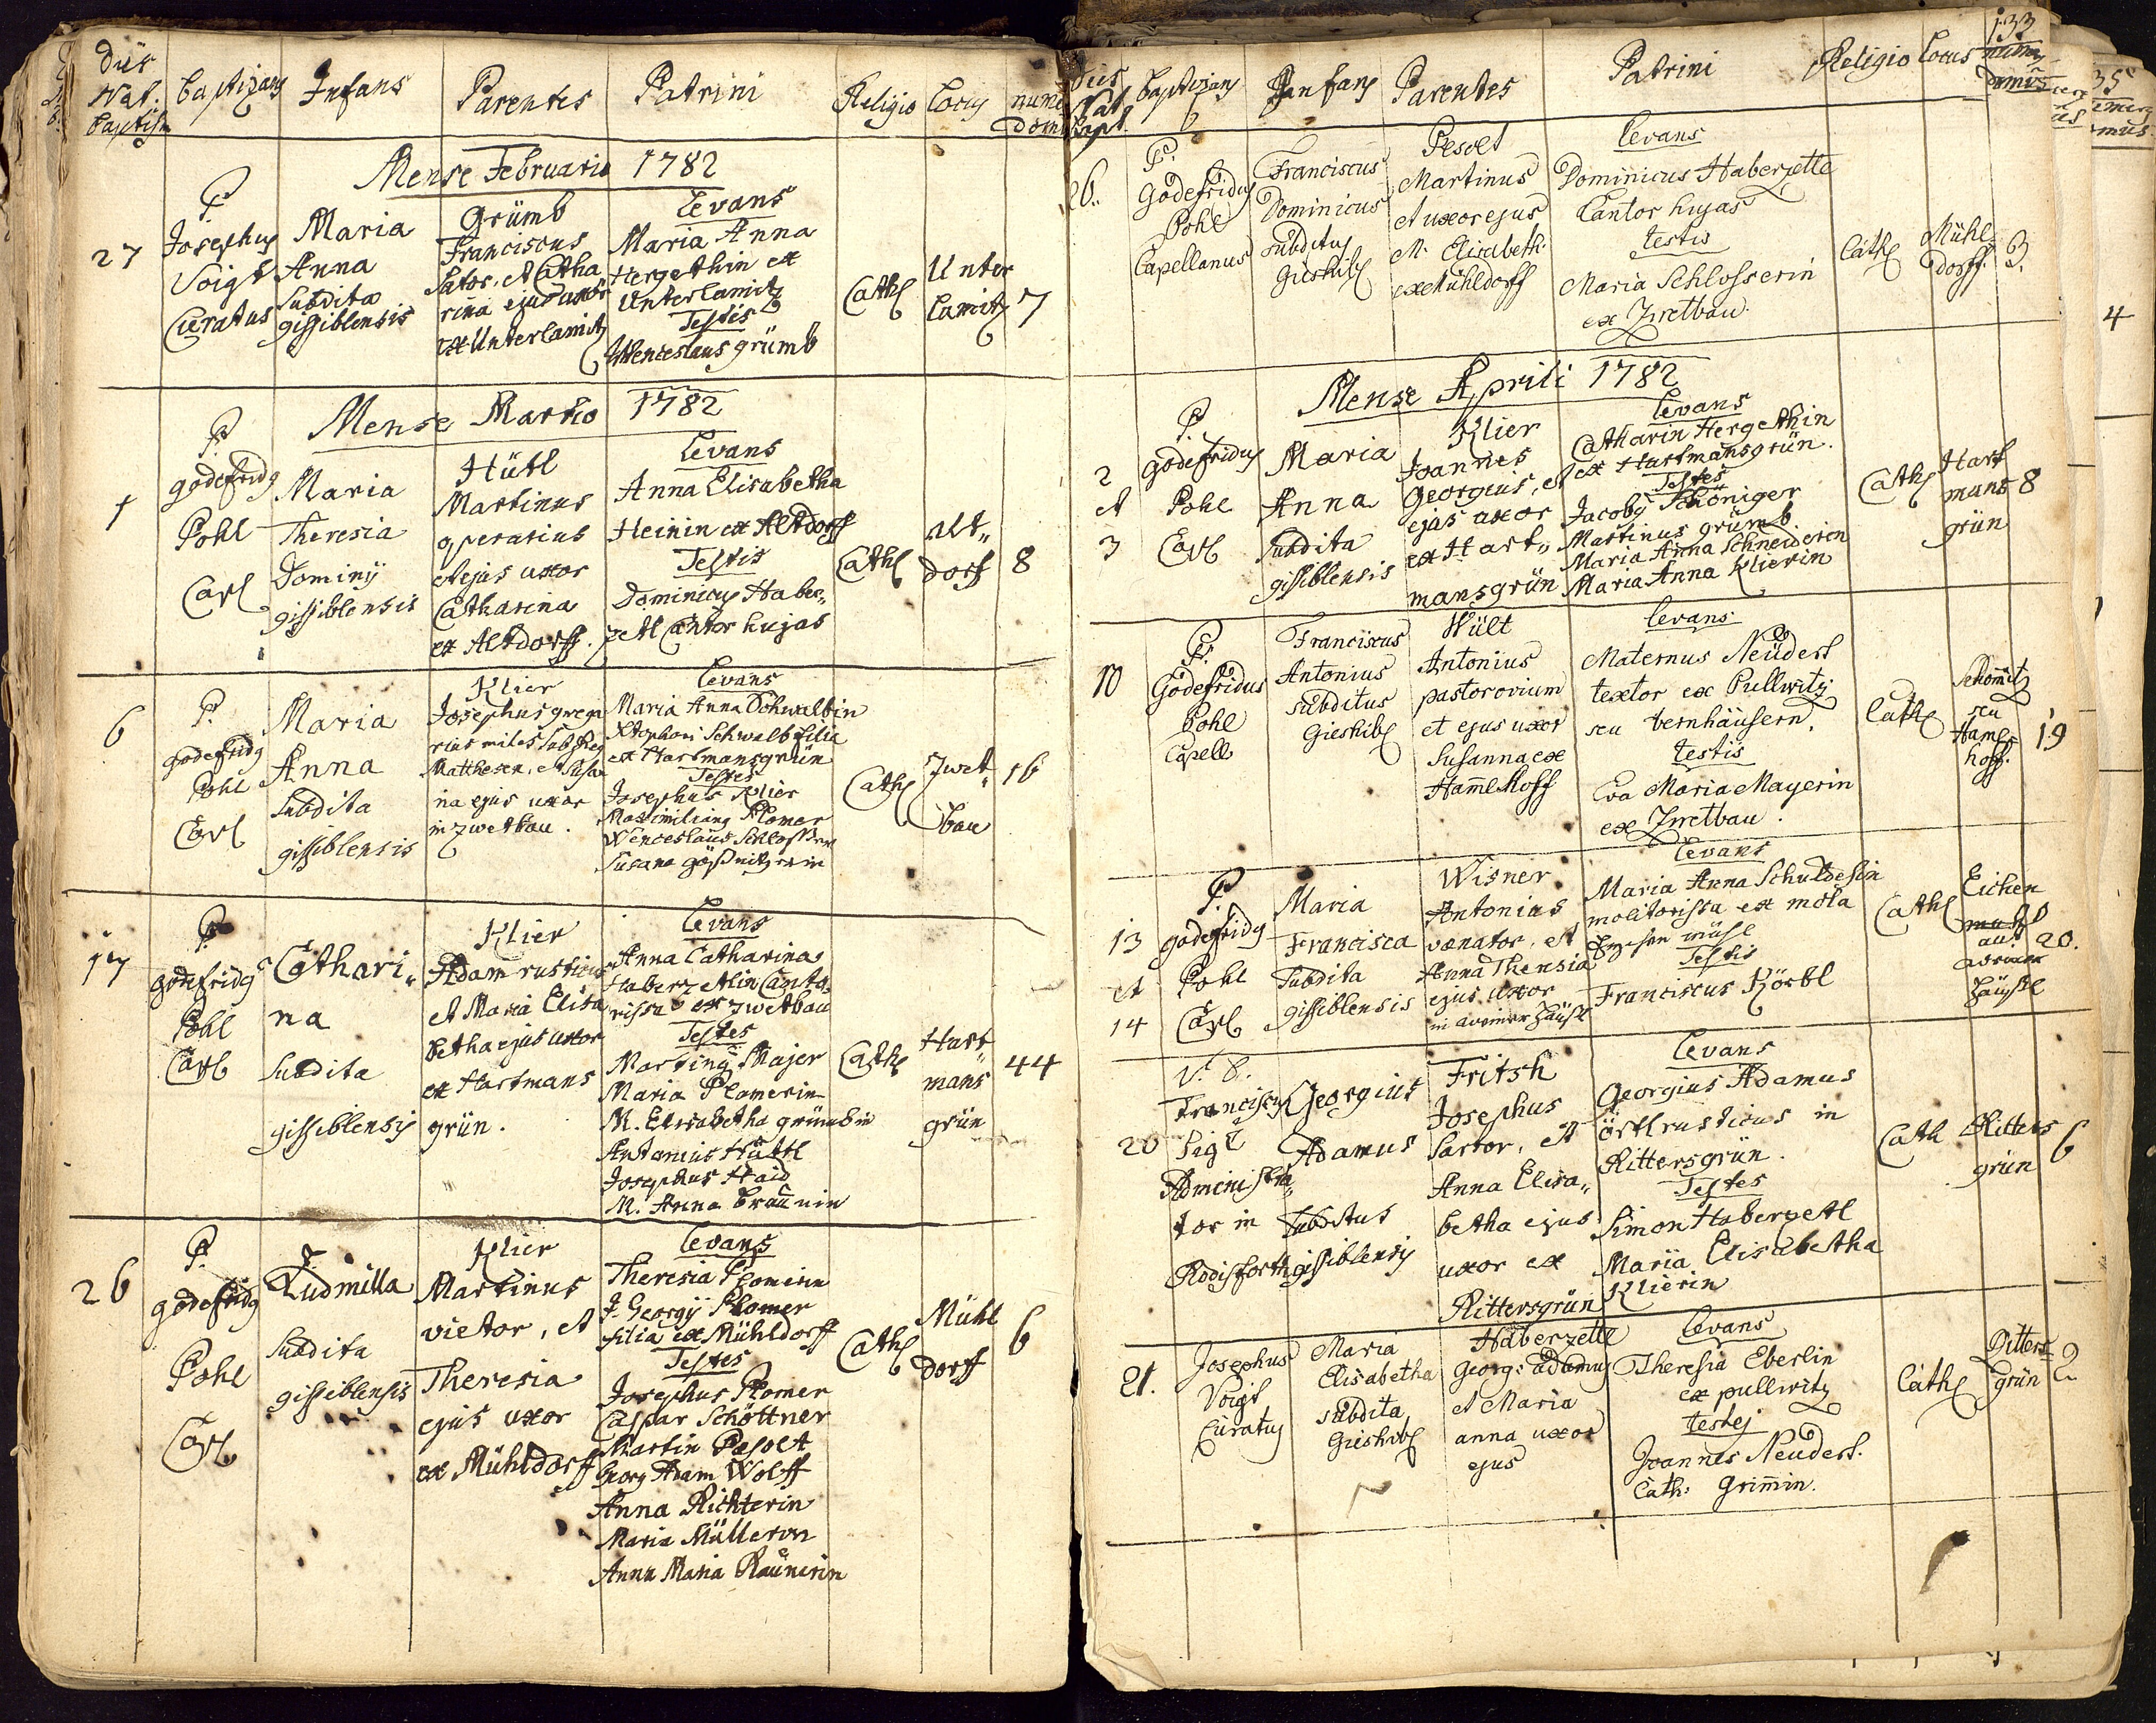 Dies Nat. Baptism
Baptizans
Infans
Parentes
Patrini
Religio
Locus
Mense Februario 1782
27
P.
Josephus
Voigt
Curatus
Maria
Anna
Subdita
gissiblensis
Grümb
Franciscus
Sator, et Catha
rina ejus uxor
ex Unterlamitz
Levans
Maria Anna
Hergethin ex
Unterlamitz
Testis
Wenceslaus grümb
Cath
Unter
Lamitz
7
Mense Martio 1782
1
P.
godefridg
Pohl
Capl
Maria
Theresia
Dominij
gissiblensis
Hütl
Martinus
operarius
et ejus uxor
Catharina
ex Altdorff.
Levans
Anna Elisabetha
Heinin ex Altdorff
Testis
Dominicus Haber„
zetl Cantor hujas
Cath
alt„
dorf
8
6
P.
godefridg
Pohl
Capl
Maria
Anna
Subdita
gissiblensis
Klier
Josephus grega
rius miles sub Reg
Matthesen, et Susa
na ejus uxor
in zwetbau.
Levans
Maria Anna Schwalbin
Xtophori Schwalb filia
ex Hartmansgrün
Testes
Josephus Klier
Maximilian Plomer
Wenceslaus Schlosser
Susana gößnitzerin
Cath
Zwet„
bau
16
17
P.
godefridg
Pohl
Capl
Cathari„
na
Subdita
gissiblensis
Klier
Adam rusticus
et Maria Elisa
betha ejus uxor
ex Hartmans
grün.
Levans
Anna Catharina
Haberzetlin Canto„
rissa ex zwetbau
Testes
Martinus Majer
Maria Plomerin
M. Elisabetha grümbin
Antonius Hütl
Josephus Haid
M. Anna Braunin
Cath
Hart„
mans
grün
44
26
P.
godefridg
Pohl
Capl
Ludmilla
Subdita
gissiblensis
Klier
Martinus
vietor, et
Theresia
ejus uxor
ex Mühldorff
Levans
Theresia Plomerin
J. Georgij Plomer
filia ex Mühldorff
Testes
Josephus Plomer
Caspar Schöttner
Martin Pesolt
Georg Adam Wolff
Anna Richterin
Maria Müllerin
Anna Maria Raunerin
Cath
Mühl
dorff
6
133
Dies Nat. Bapt.
Baptizans
Infans
Parentes
Patrini
Religio
Locus
Domus
26.
P.
Godefridus
Pohl
Capellanus
Franciscus
Dominicus
subditus
Gieshib
Pesolt
Martinus
et uxor ejus
M. Elisabeth
ex Mühldorff
Levans
Dominicus Haberzettl
Cantor hujas
testis
Maria Schlosserin
ex Zwetbau.
Cath
Mühl
dorff.
3.
Mense Aprili 1782
2
et
3
P.
godefridus
Pohl
Capl
Maria
Anna
Subdita
gissiblensis
Klier
Joannes
Georgius, et
ejus uxor
ex Hart„
mansgrün
Levans
Catharin Hergethin
ex Hartmansgrün.
Testes
Jacobg Schöniger
Martinus grümb
Maria Anna Schneiderin
Maria Anna Klierin
Cath
Hart
mans
grün
8
10
P.
Godefridus
Pohl
Capell
Franciscus
Antonius
subditus
Gieshib
Hült
Antonius
pastor ovium
et ejus uxor
Susanna ex
Hamelhoff
Levans
Maternus Neüderl
textor ex Pullwitz
seu bernhäusern.
testis
Eva Maria Mayerin
ex Zwetbau.
Cath
Schomitz
seu
Hamel
hoff.
19
13
et
14
P.
godefridg
Pohl
Capl
Maria
Francisca
Subdita
gissiblensis
Wisner
Antonius
venator, et
Anna Theresia
ejus uxor
Levans
Maria Anna Schuldesin
molitorissa ex mola
Testis
Franciscus Körbl
Cath
Eichen
20.
20
V. D.
Franciscus
Sigl
Administra„
tor in
Rodisforth
Georgius
Adamus
Subditus
gissiblensis
Fritsh
Josephus
Sartor, et
Anna Elisa„
betha ejus
uxor ex
Rittersgrün
Levans
Georgius Adamus
Örtl rusticus in
Rittersgrün.
Testes
Simon Haberzetl
Maria Elisabetha
Klierin
Cath
Ritters
grün
6
21.
Josephus
Voigt
Curatus
Maria
Elisabetha
subdita
Gieshib
Haberzettl
Georg: adamus
et Maria
anna uxor
ejus
Levans
Theresia Eberlin
ex pullwitz
testes
Joannes Neuderl.
Cath: Grimin.
Cath
Ritters
grün
2
35
4